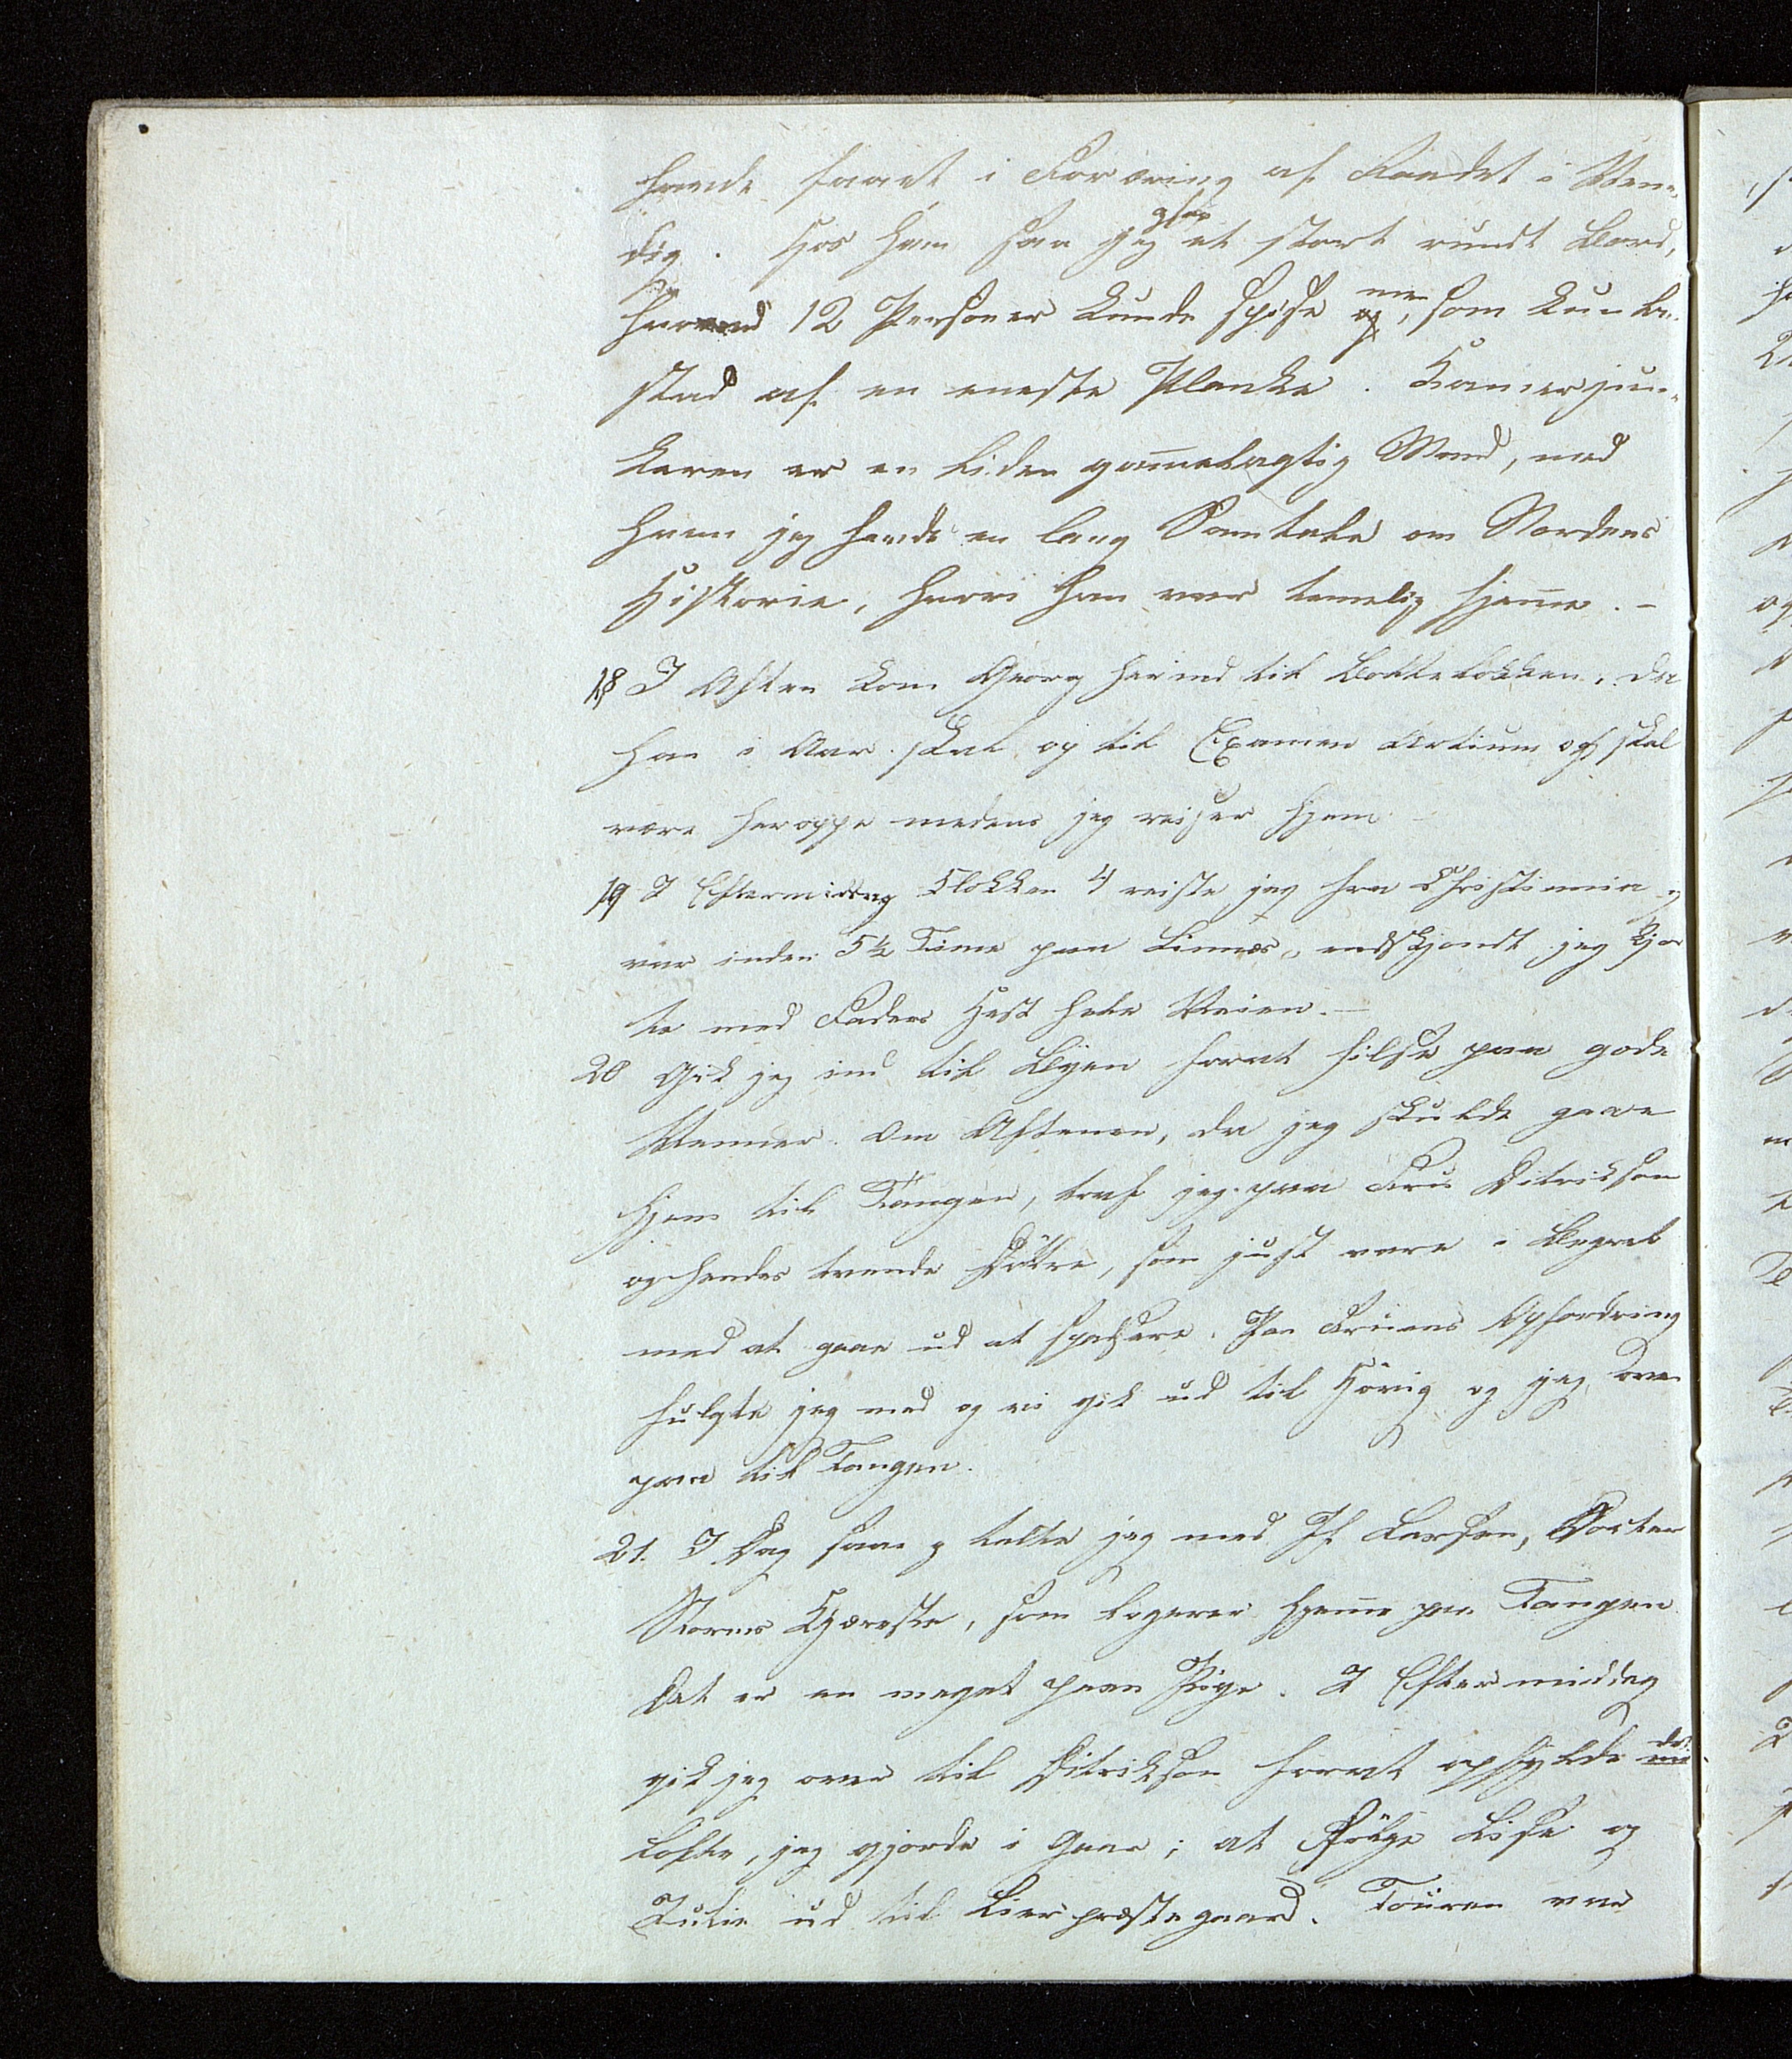 havde faaet i Foræring af Raadet i Vene-
dig. Hos ham saa jeg ogsaa et stort rundt Bord,
hvorved 12 Personer kunde spise, som kun be-
stod af en eneste Planke. Kammerjun-
keren er en liden gammelagtig Mand, med
hvem jeg havde en lang Samtale om Nordens
Historie, hvori han var temelig hjemme. –
18 I Aften kom Georg herind til Bolteløkken, da
han i Aar skal op til Examen Artium og skal
være heroppe medens jeg reiser hjem
19 I Eftermiddag Klokken 4 reiste jeg fra Christiania og
var inden 5½ Time paa Linnes, endskjøndt jeg kjør
te med Faders Hest hele Veien. –
20 Gik jeg ind til Byen forat hilse paa gode
Venner. Om Aftenen, da jeg skulde gaae
hjem til Tangen, traf jeg paa Fru Ditrikson
og hendes tvende Døttre, som just vare i Begreb
med at gaae ud at spadsere. Paa Fruens Opfordring
fulgte jeg med og vi gik ud til Hövig og jeg der-
paa til Tangen.
21. I Dag saae og talte jeg med Jf Larsen, Doctor
Storms Kjæreste, som logerer hjemme paa Tangen.
Det er en meget pæn Pige. I Eftermiddag
gik jeg over til Ditrikson forat opfylde det
Løfte, jeg gjorde i Gaar; at følge Lise og
Julie ud til Lier præstegaard. Touren var